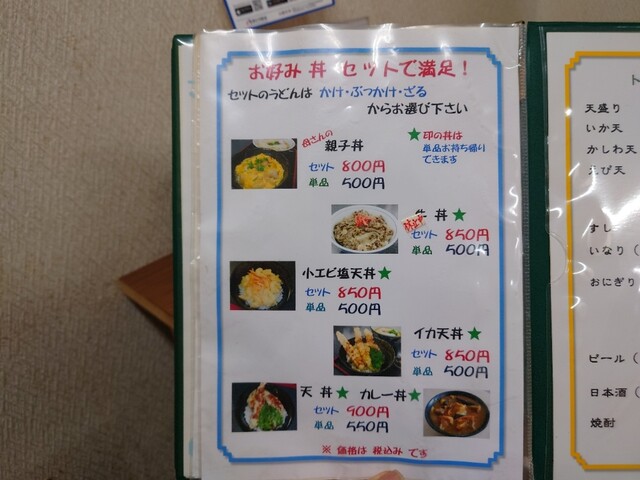 お好み 丼 セットで満足!
セットのうどんは かけ・ぶっかけ・ざる
からお選び下さい
母さんの
親子丼
セット 800円
単品 500円
★印の丼は
単品お持ち帰り
できます
丼★
セット 850円
単品 500円
小エビ塩天丼★
セット 850円
単品 500円
イカ天丼★
セット 850円
単品 500円
天丼★ カレー丼★
セット 900円
単品 550円
※ 価格は 税込み です
天盛り
いか天
かしわ天
えび天
いなり(
おにぎり
ビール(
日本酒(
焼酎